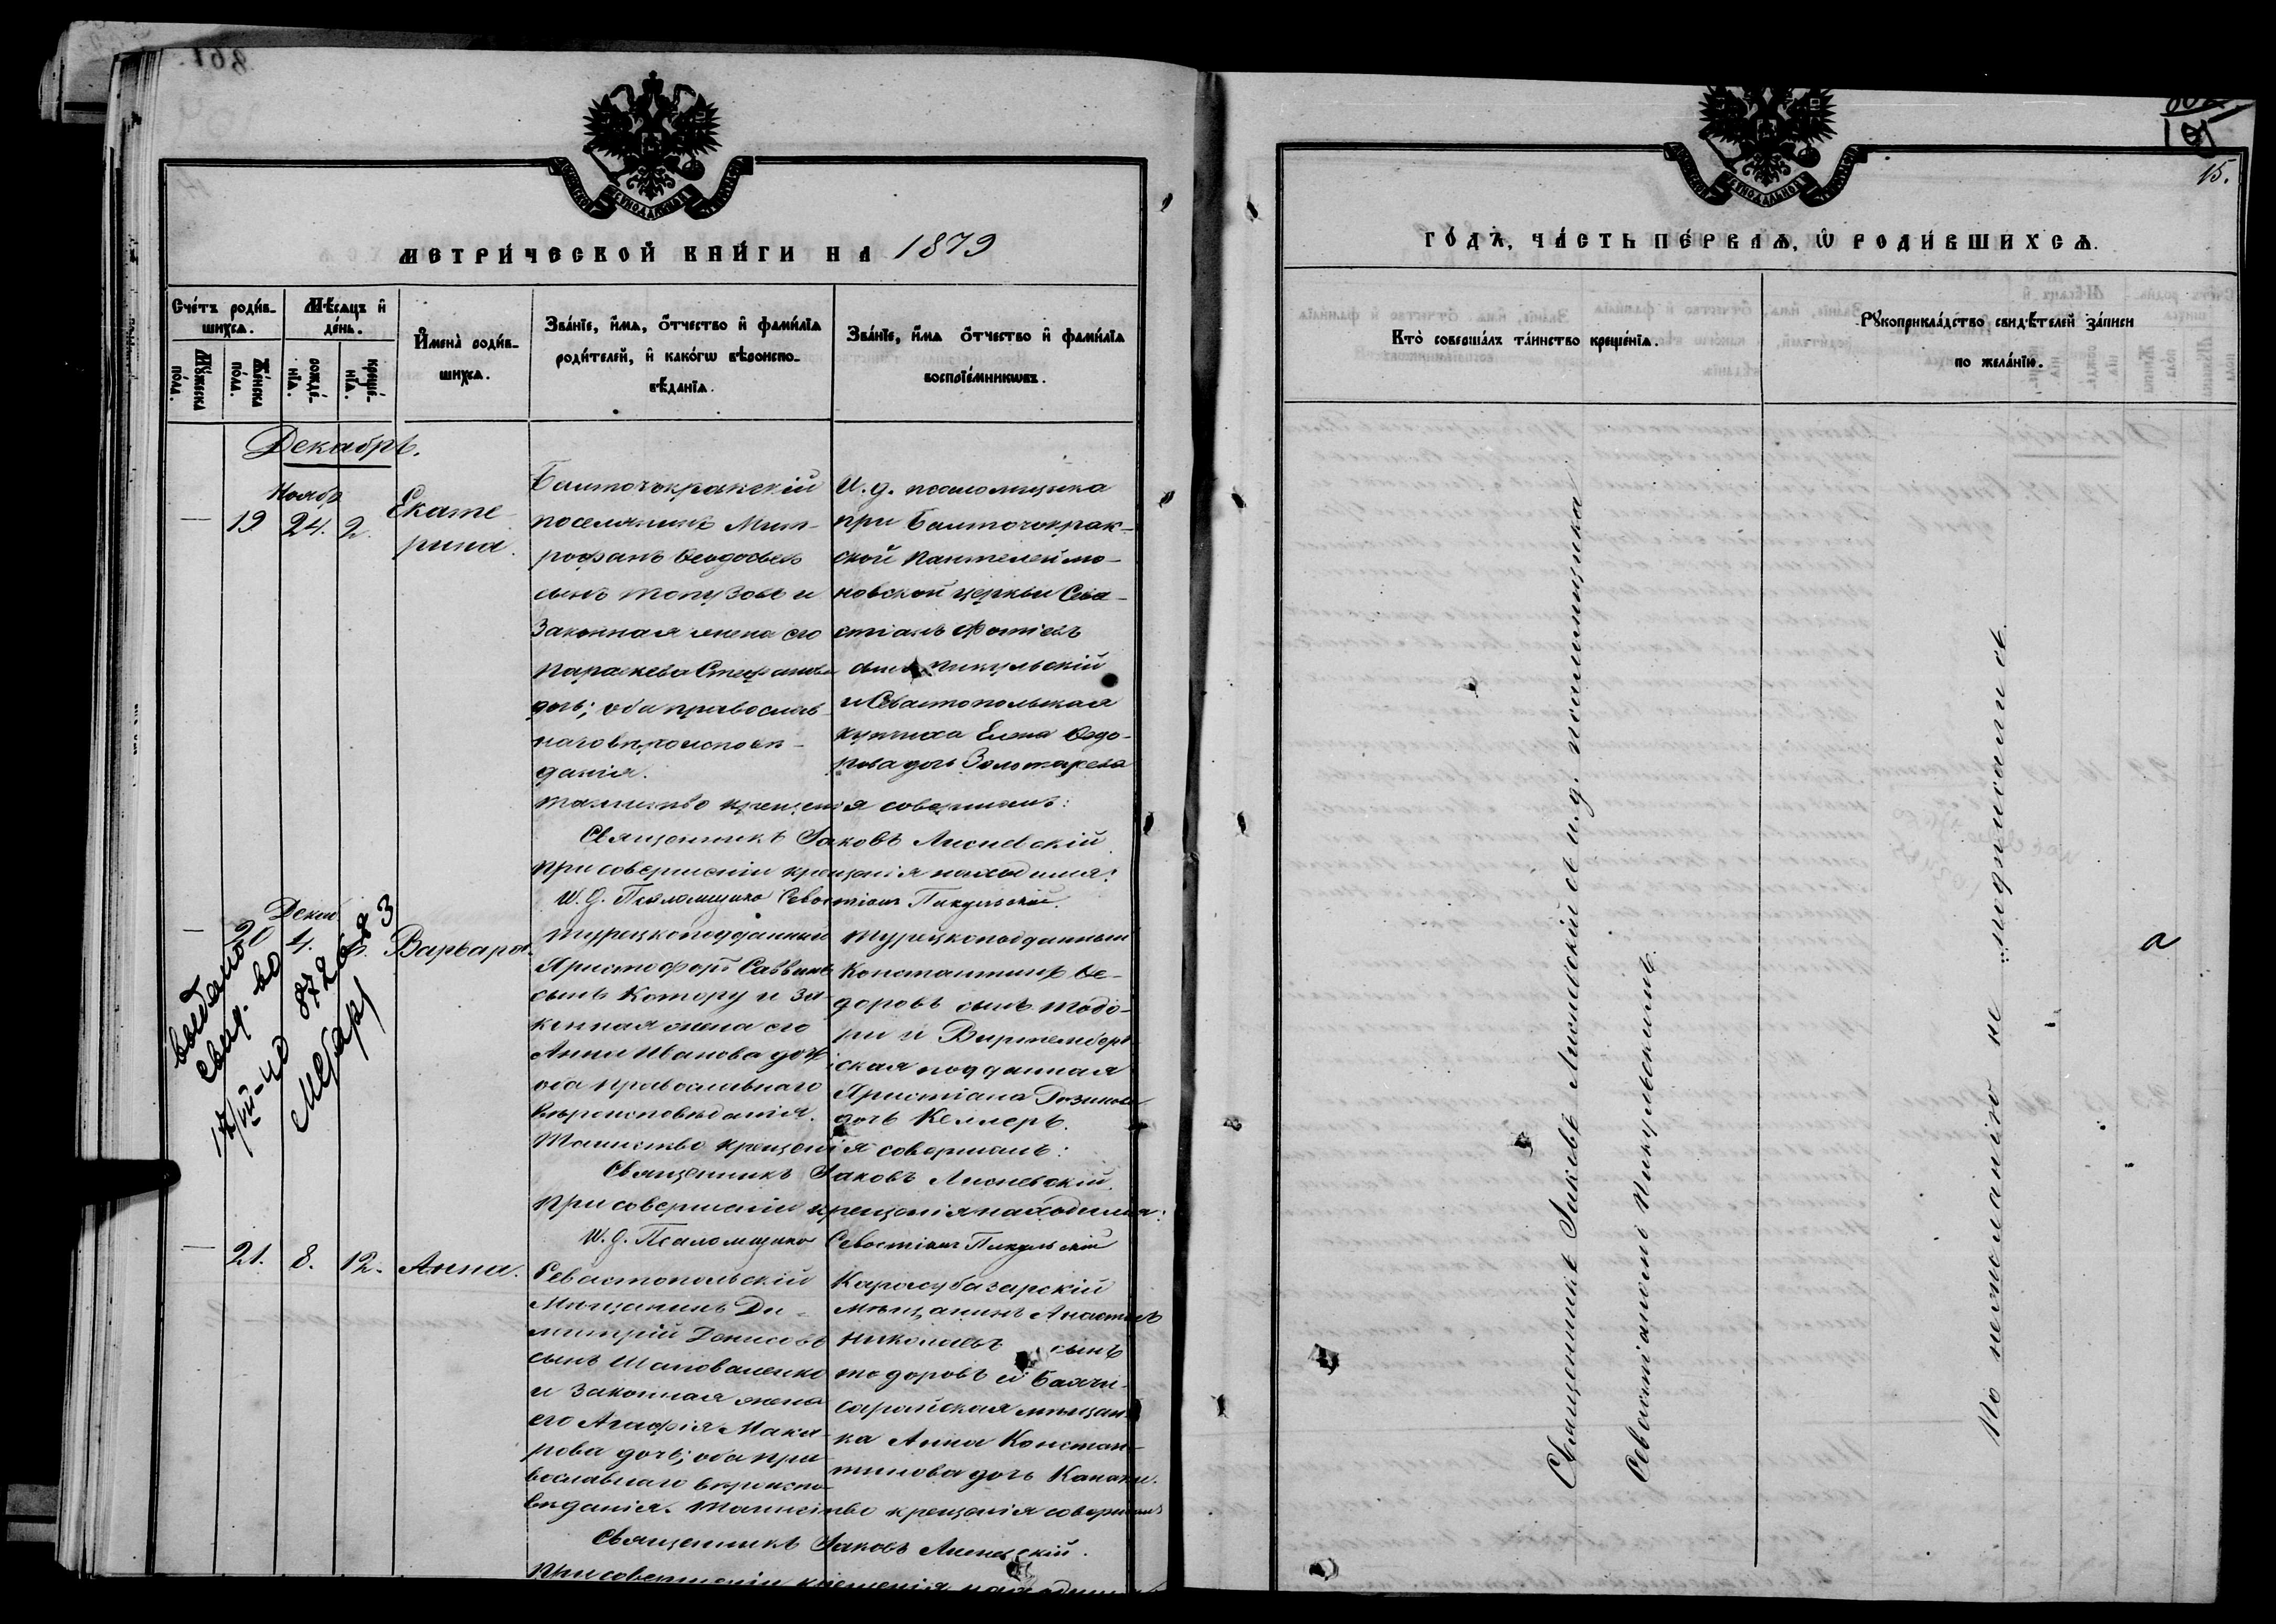 МЕТРИ́ЧЕСКОЙ КНИ́ГИ НА 1879
Сче́тъ роди́в-
шихсѧ.
Мꙋ́жеска
по́ла.
Же́нска
по́ла.
Мѣ́сѧцъ и҆
де́нь.
рожде́-
нїѧ.
креще́-
нїѧ.
И҆мена̀ роди́в-
шихсѧ.
Зва́нїе, и҆́мѧ, ѻ҆́тчество и҆ фами́лїѧ
роди́телей, и҆ како́гѡ вѣроиспо-
вѣ́данїѧ.
Зва́нїе, и҆́мѧ ѻ҆́тчество и҆ фами́лїѧ
воспрїе́мникѡвъ.
Декабрь.
Ноябр
— 19 24. 2.
Екате-
рина.
Балточокракскій
поселянинъ Мит-
рофанъ Ѳеодосьевъ
сынъ Топузовъ и
законная жена его
Параскева Стефанова
дочь; оба православ-
наго вѣроисповѣ-
данія.
И. д. псаломщика
при Балточокрак-
ской Пантелеймо-
новской церкви Сева-
стіанъ Фотіевъ
сынъ Пикульскій
и Севастопольская
купчиха Елена Ѳедо-
рова дочь Золотарева
Таинство крещенія совершалъ:
Священникъ Іаковъ Лисневскій.
При совершеніи крещенія находился:
И. д. Псаломщика Севастіанъ Пикульскій.
Декаб
— 20 4. 6. Варвара.
Турецкоподданный
Аристофоръ Саввинъ
сынъ Котору и за-
конная жена его
Анна Иванова дочь
оба православнаго
вѣроисповѣданія.
Турецкоподданный
Константинъ Ѳе-
доровъ сынъ Тодо-
ри и Виртемберг
ская подданная
Христіана Розинова
дочь Келлеръ.
Таинство крещенія совершалъ:
Священникъ Іаковъ Лисневскій.
При совершеніи крещенія находился:
И. д. Псаломщика Севастіанъ Пикульскій
выдано
свид. во
17/III-40 872683
— 21. 8. 12. Анна.
Севастопольскій
Мѣщанинъ Ди-
митрій Денисовъ
сынъ Шаповаленко
и законная жена
его Агафія Мака-
рова дочь; оба пра-
вославнаго вѣроиспо-
вѣданія.
Карасубазарскій
мѣщанинъ Анастасъ
Николаевъ сынъ
Тодоровъ и Бахчи-
сарайская мѣщан-
ка Анна Констан-
тинова дочь Канаки.
Таинство крещенія совершалъ
Священникъ Іаковъ Лисневскій.
При совершеніи крещенія находился
101
15.
ГО́ДЪ, ЧА́СТЬ ПЕ́РВАѦ, Ѡ҆ РОДИ́ВШИХСѦ.
Кто̀ соверша́лъ та́инство креще́нїѧ.
Рꙋкоприкла́дство свидѣ́телей за́писи
по жела́нїю.
Священникъ Іаковъ Лисневскій съ и. д. псаломщика
Севастіаномъ Пикульскимъ.
По нежеланію не подписались.